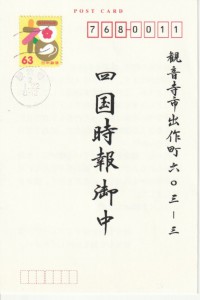 POST CARD
768-0011
福
63
観音寺市出作町六〇三ー三
四国時報御中